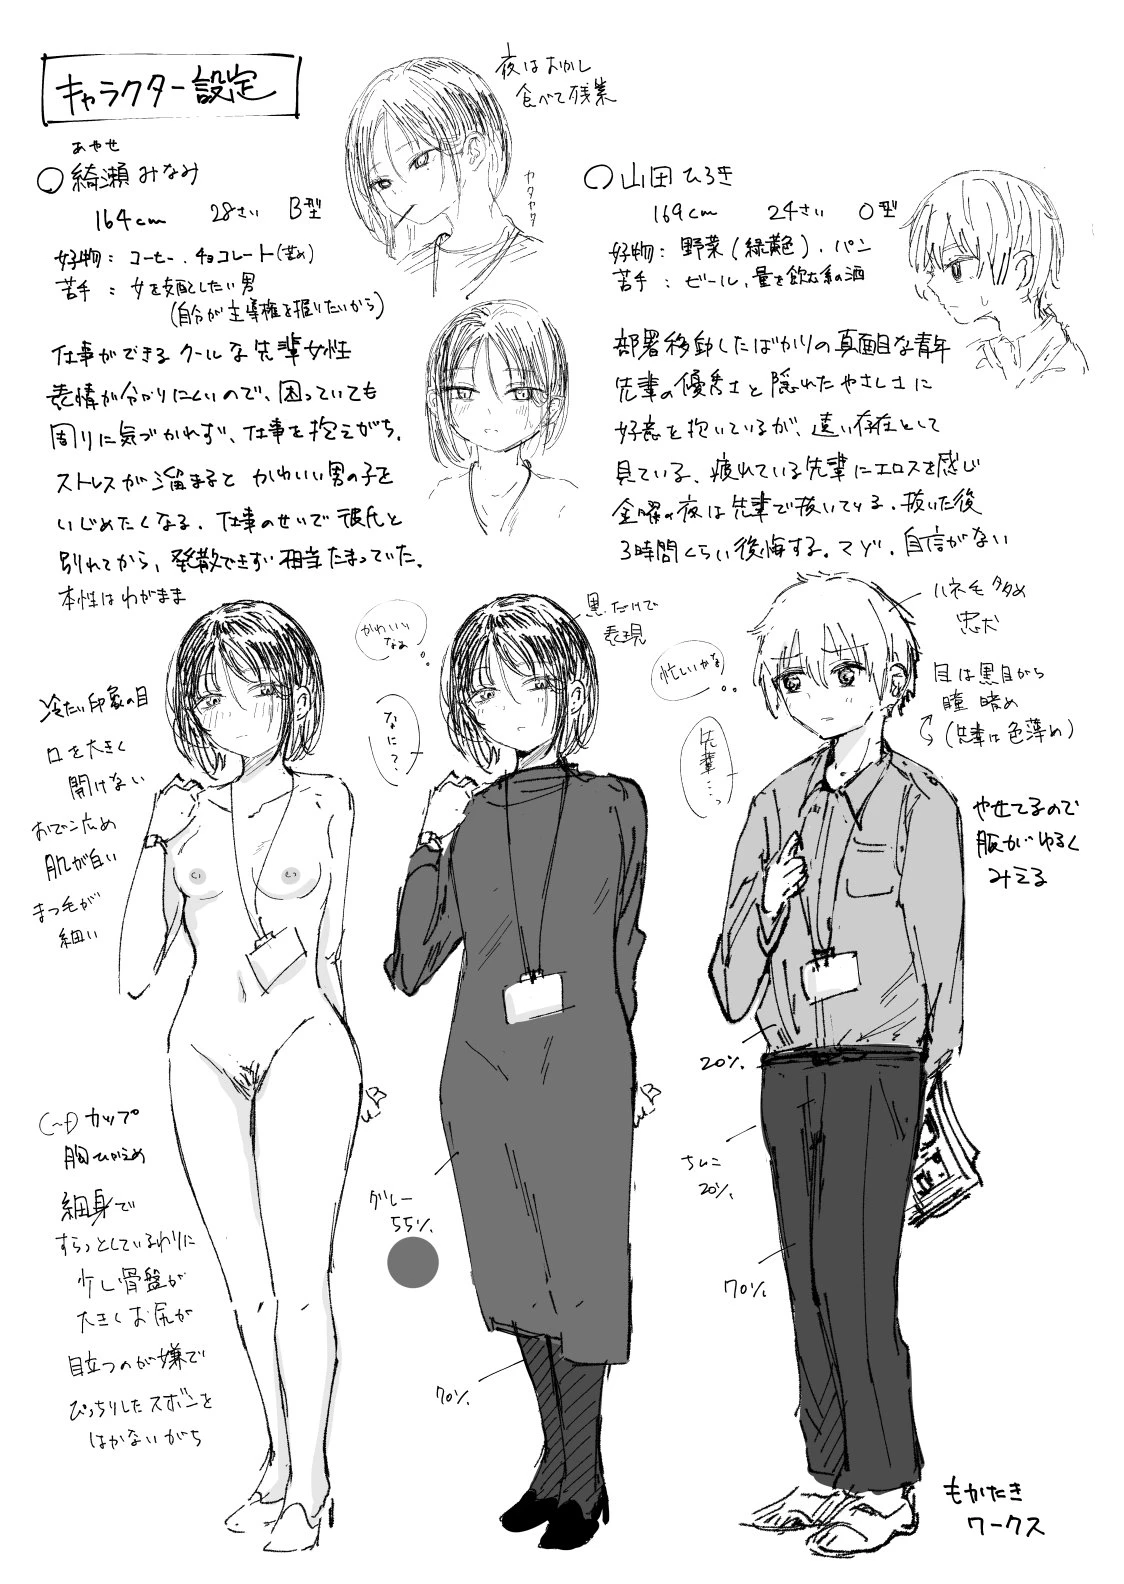 キャラクター設定
夜はおかし
食べて残業
カタカタ
あやせ
○綺瀬みなみ
164cm 28さい B型
好物：コーヒー、チョコレート(苦め)
苦手：女を支配したい男
(自分が主導権を握りたいから)
仕事ができるクールな先輩女性
表情が分かりにくいので、困っていても
周りに気づかれず、仕事を抱えがち。
ストレスが溜まるとかわいい男の子を
いじめたくなる。仕事のせいで彼氏と
別れてから、発散できず相当たまっていた。
本性はわがまま
○山田ひろき
169cm 24さい O型
好物：野菜(緑黄色)、パン
苦手：ビール、量を飲む系の酒
部署移動したばかりの真面目な青年
先輩の優秀さと隠れたやさしさに
好意を抱いているが、遠い存在として
見ている。疲れている先輩にエロスを感じ
金曜の夜は先輩で抜いてる。抜いた後
3時間くらい後悔する。マゾ、自信がない
かわいい
なぁ
なに？
黒だけで
表現
忙しいかな
先輩…っ
ハネ毛タタめ
忠犬
目は黒目がち
瞳 暗め
(先輩は色薄め)
やせてるので
服がゆるく
みえる
冷たい印象の目
口を大きく
開けない
おでこ広め
肌が白い
まつ毛が
細い
カップ
胸ひかえめ
細身で
すらっとしているわりに
少し骨盤が
大きくお尻が
目立つのが嫌で
ぴっちりしたズボンを
はかないがち
グレー
55%
70%
20%
ちんこ
20%
70%
もかたき
ワークス